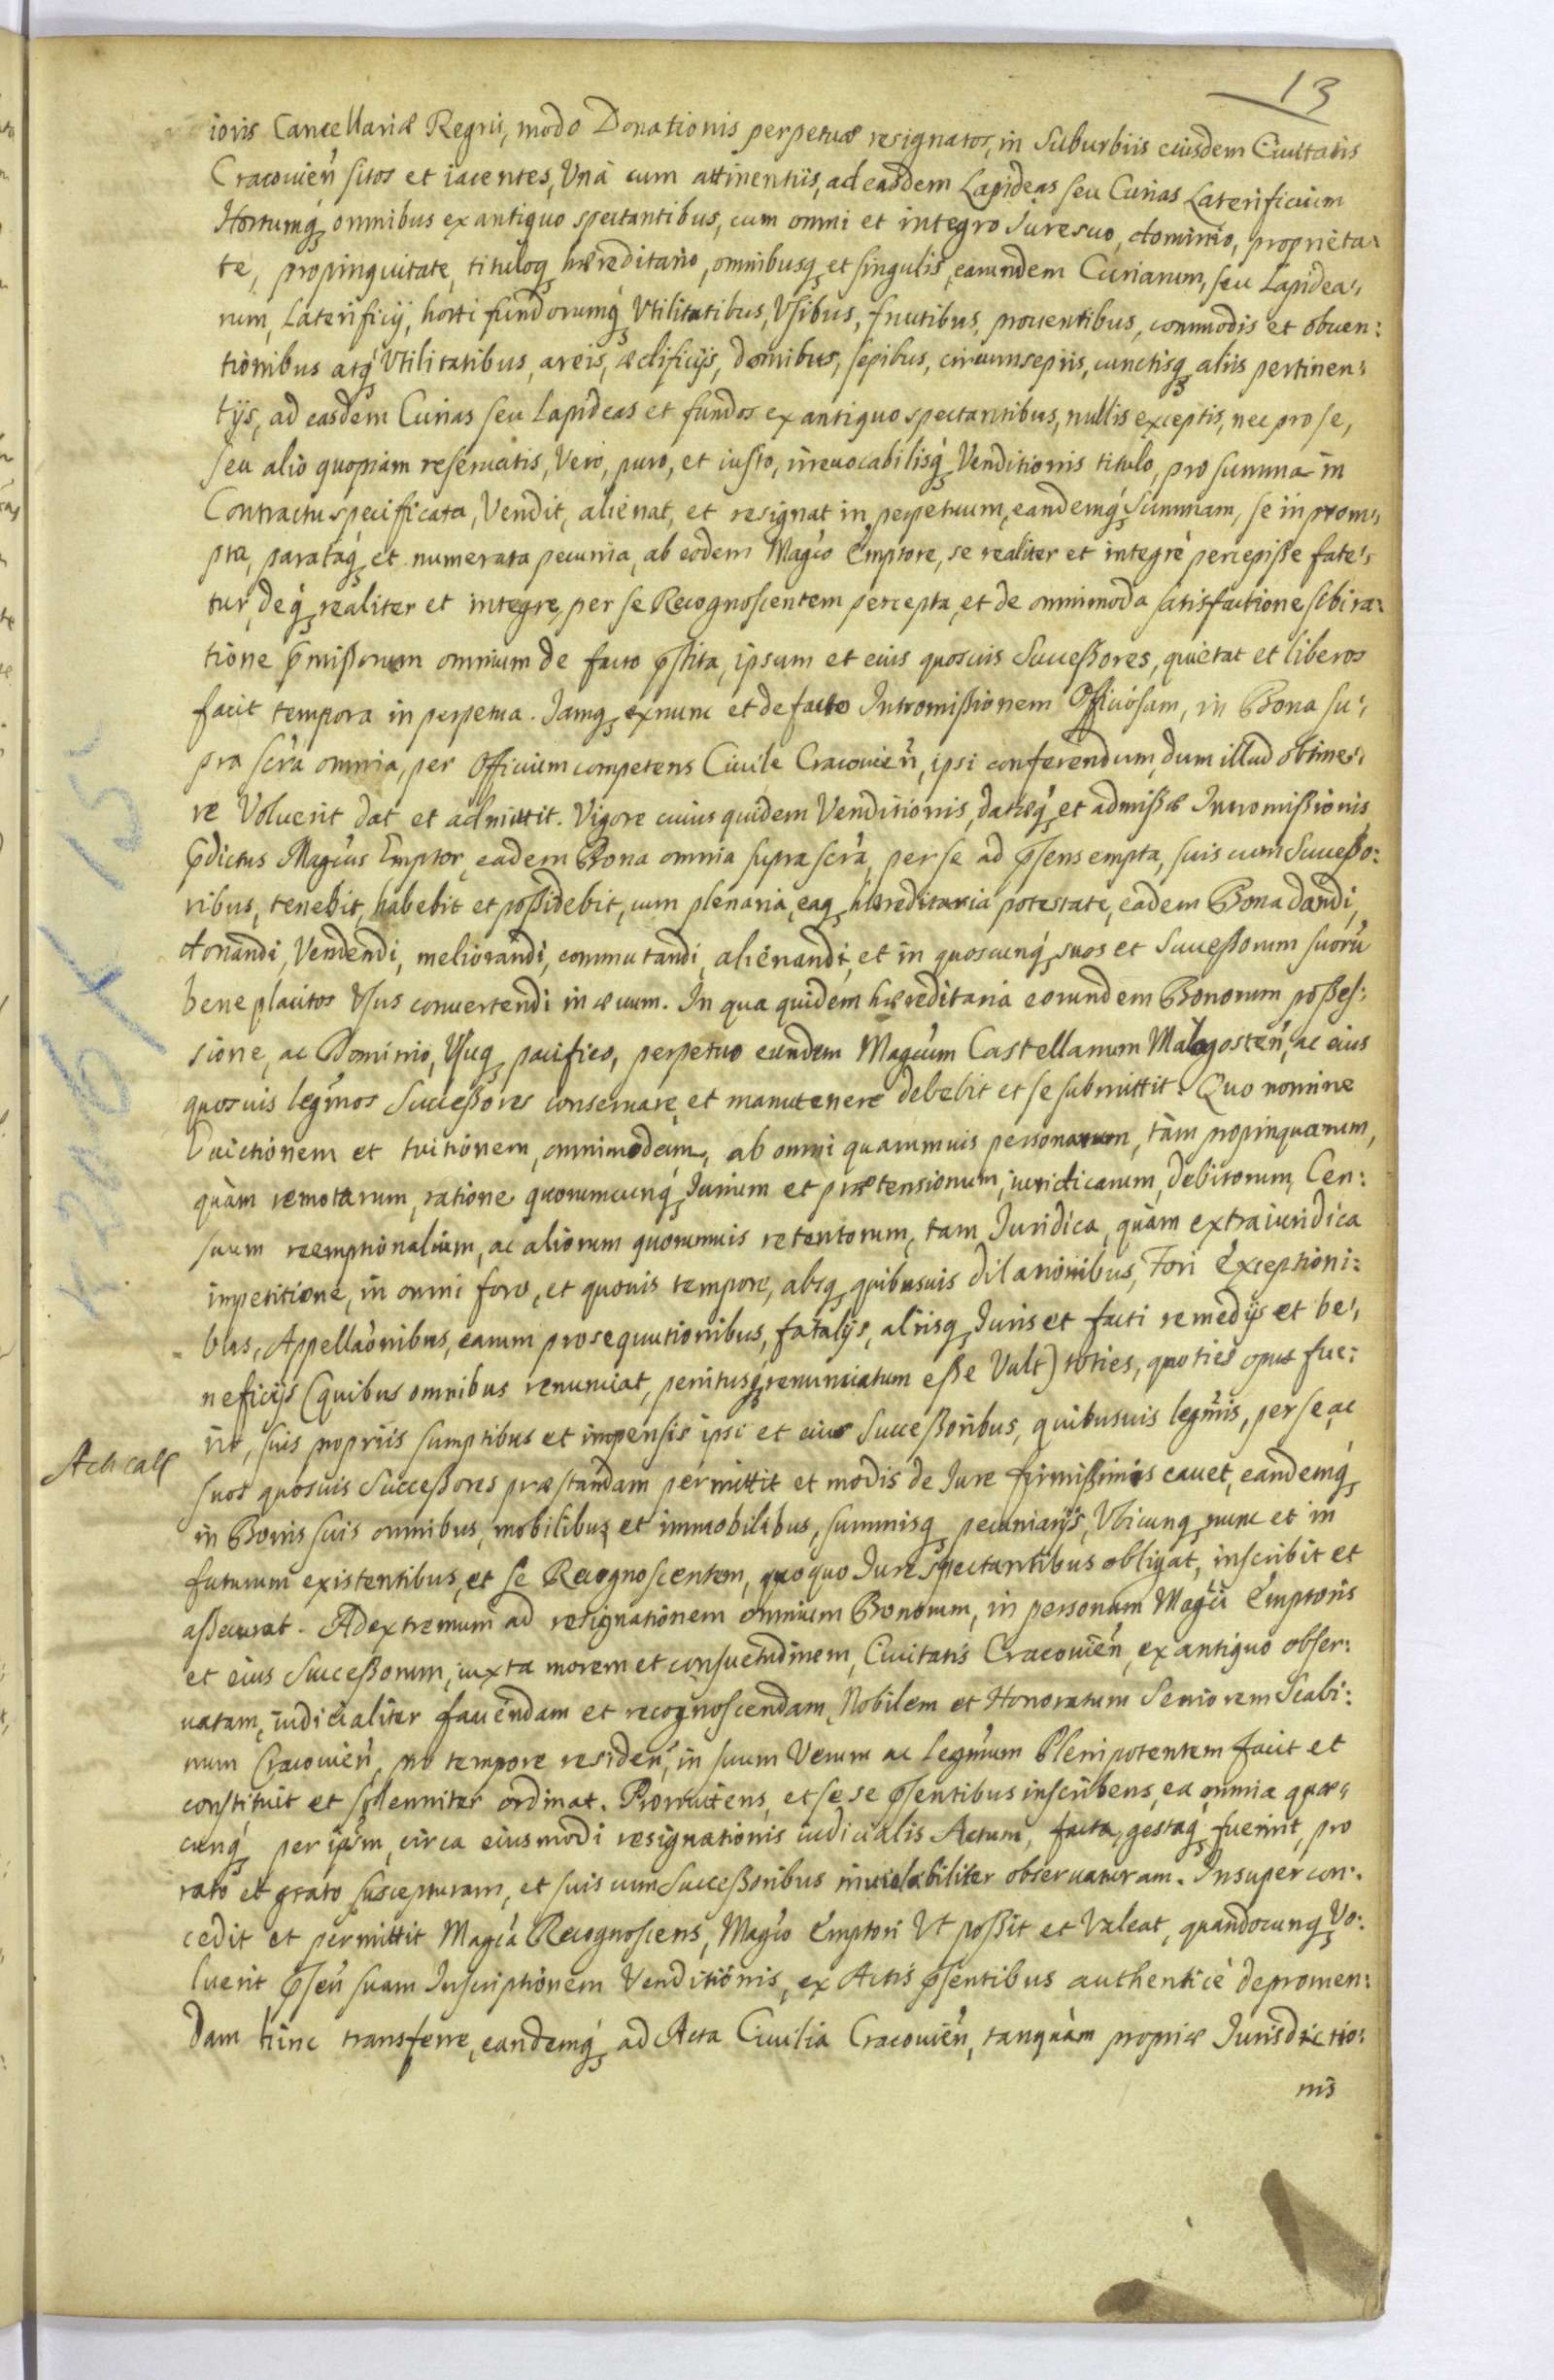 13
ioris Cancellariæ Regni, modo Donationis perpetuæ resignatos, in Suburbiis eiusdem Ciuitatis
Cracouien̄ sitos et iacentes, Vnà cum attinentiis, ad easdem Lapideas seu Curias Laterificium
Hortumq́ʒ omnibus ex antiquo spectantibus, cum omni et integro Iure suo, dominio, proprieta:
te, propinquitate, tituloqʒ hæreditario, omnibusqʒ et singulis, earundem Curiarum, seu Lapidea:
rum, Laterificij, horti fundorumq́ʒ Vtilitatibus, Vsibus, fructibus, prouentibus, commodis et obuen:
tionibus atq́ʒ Vtilitatibus, areis, ædificijs, domibus, sepibus, circumsepiis, cunctisqʒ aliis pertinen:
tijs, ad easdem Curias seu Lapideas et fundos ex antiquo spectantibus, nullis exceptis, nec pro se,
seu alio quopiam reseruatis, Vero, puro, et iusto, irreuocabilisq́ʒ Venditionis titulo, pro summa in
Contractu specifficata, Vendit, alienat, et resignat in perpetuum, eandemq́ʒ Summam, se in prom:
pta, parataq́ʒ et numerata pecunia, ab eodem Magc̄o Emptore, se realiter et integrè percepisse fate:
tur, deq́ʒ realiter et integre, per se Recognoscentem percepta, et de omnimoda satisfactione sibi ra:
tione p̄missorum omnium de facto p̄stita, ipsum et eius quosuis Successores, quietat et liberos
facit tempora in perpetua. Iamqʒ ex nunc et de facto Intromissionem Officiosam, in Bona su:
pra scr̄a omnia, per Officium competens Ciuile Cracouien̄, ipsi conferendum, dum illud obtine:
re Voluerit dat et admittit. Vigore cuius quidem Venditionis, datæq́ʒ et admissæ Intromissionis
p̄dictus Magc̄us Emptor, eadem Bona omnia supra scr̄a, per se ad p̄sens empta, suis cum Successo:
ribus, tenebit, habebit et possidebit, cum plenaria, eaqʒ hæreditaria potestate, eadem Bona dandi,
donandi, Vendendi, meliorandi, commutandi, alienandi, et in quoscunq́ʒ suos et Successorum suorū
beneplacitos Vsus conuertendi in æuum. In qua quidem hæreditaria eorundem Bonorum posses:
sione, ac Dominio, Vsuqʒ pacifico, perpetuo eundem Magc̄um Castellanum Malogosten̄, ac eius
quosuis legm̄os Successores conseruare, et manutenere debebit et se submittit. Quo nomine
Euictionem et tuitionem, omnimodam, ab omni quarumuis personarum, tàm propinquarum,
quàm remotarum, ratione quorumcunq́ʒ Iurium et prætensionum, iuridicarum, debitorum, Cen:
suum reemptionalium, ac aliorum quorumuis retentorum, tam Iuridica, quàm extraiuridica
impetitione, in omni foro, et quouis tempore, absqʒ quibusuis dilationibus, Fori Exceptioni:
bus, Appellāonibus, earum prosequutionibus, fatalijs, aliisqʒ Iuris et facti remedijs et be:
neficijs (quibus omnibus renunciat, penitusq́ʒ renunciatum esse Vult) toties, quoties opus fue:
rit, suis propriis sumptibus et impensis ipsi et eius Successoribus, quibusuis legm̄is, per se, ac
suos quosuis Successores præstandam permittit et modis de Iure firmissimis cauet, eandemq́ʒ
in Bonis suis omnibus, mobilibus et immobilibus, summisqʒ pecuniarijs, Vbicunqʒ nunc et in
futurum existentibus, et se Recognoscentem, quoquo Iure spectantibus obligat, inscribit et
assecurat. Ad extremum ad resignationem omnium Bonorum, in personam Magc̄i Emptoris
et eius Successorum, iuxta morem et consuetudinem, Ciuitatis Cracouien̄, ex antiquo obser:
uatam, iudicialiter fauendam et recognoscendam, Nobilem et Honoratum Seniorem Scabi:
num Cracouien̄ pro tempore residen̄, in suum Verum ac Legm̄um Plenipotentem facit et
constituit et solenniter ordinat. Promittens, et sese p̄sentibus inscribens, ea omnia quæ:
cunq́ʒ per ipsm̄, circa eiusmodi resignationis iudicialis Actum, facta, gestaq́ʒ fuerint, pro
rato et grato suscepturam, et suis cum Successoribus inuiolabiliter obseruaturam. Insuper con:
cedit et permittit Magc̄a Recognoscens, Magc̄o Emptori Vt possit et Valeat, quandocunqʒ Vo:
luerit p̄sen̄ suam Inscriptionem Venditionis, ex Actis p̄sentibus authenticè depromen:
dam hinc transferre, eandemq́ʒ ad Acta Ciuilia Cracouien̄, tanquàm propriæ Iurisdictio:
nis